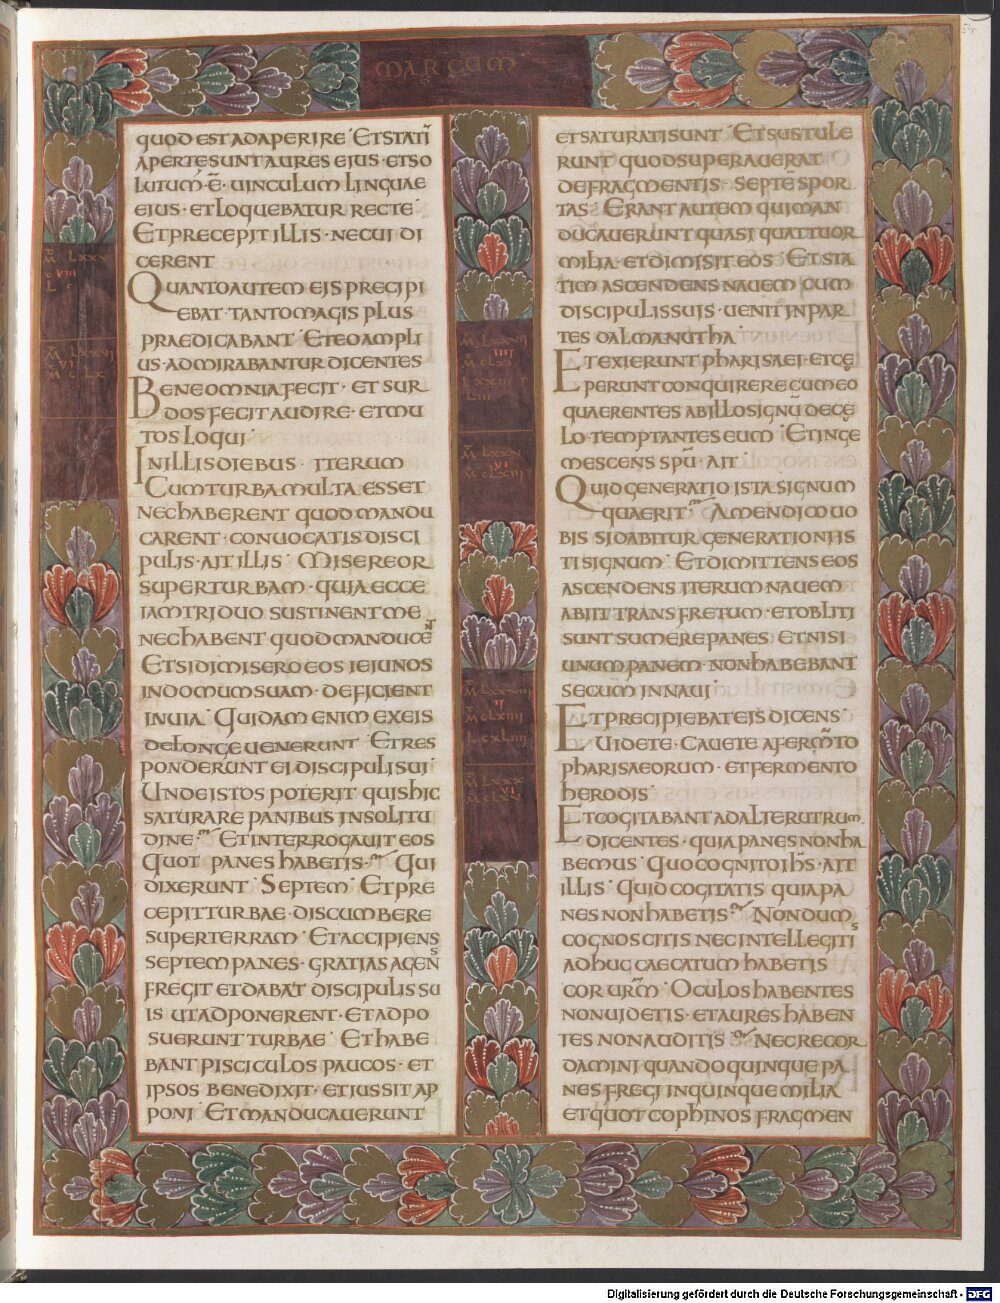 MARCUM
QUOD EST ADAPERIRE · ET STATĪ
APERTE SUNT AURES EIUS · ET SO
LUTUM · Ē · UINCULUM LINGUAE
EIUS · ET LOQUEBATUR RECTE ·
ET PRECEPIT ILLIS · NE CUI DI
CERENT
QUANTO AUTEM EIS PRECIPI
EBAT · TANTO MAGIS PLUS
PRAEDICABANT · ET EO AMPLI
US · ADMIRABANTUR DICENTES
BENE OMNIA FECIT · ET SUR
DOS FECIT AUDIRE · ET MU
TOS LOQUI ·
IN ILLIS DIEBUS · ITERUM
CUM TURBA MULTA ESSET
NEC HABERENT QUOD MANDU
CARENT · CONUOCATIS DISCI
PULIS · AIT ILLIS · MISEREOR
SUPER TURBAM · QUIA ECCE
IAM TRIDUO SUSTINENT ME
NEC HABENT QUOD MANDUCENT
ET SI DIMISERO EOS IEIUNOS
IN DOMUM SUAM · DEFICIENT
IN UIA · QUIDAM ENIM EX EIS
DE LONGE UENERUNT · ET RES
PONDERUNT EI DISCIPULI SUI ·
UNDE ISTOS POTERIT QUIS HIC
SATURARE PANIBUS IN SOLITU
DINE · ET INTERROGAUIT EOS
QUOT PANES HABETIS · QUI
DIXERUNT · SEPTEM · ET PRE
CEPIT TURBAE · DISCUMBERE
SUPER TERRAM · ET ACCIPIENS
SEPTEM PANES · GRATIAS AGENS
FREGIT ET DABAT DISCIPULIS SU
IS UT ADPONERENT · ET ADPO
SUERUNT TURBAE · ET HABE
BANT PISCICULOS PAUCOS · ET
IPSOS BENEDIXIT · ET IUSSIT AP
PONI · ET MANDUCAUERUNT
ET SATURATI SUNT · ET SUSTULE
RUNT QUOD SUPERAUERAT
DE FRAGMENTIS · SEPTĒ SPOR
TAS · ERANT AUTEM QUI MAN
DUCAUERUNT QUASI QUATTUOR
MILIA · ET DIMISIT EOS · ET STA
TIM ASCENDENS NAUEM CUM
DISCIPULIS SUIS · UENIT IN PAR
TES DALMANUTHA ·
ET EXIERUNT PHARISAEI · ET CĘ
PERUNT CONQUIRERE CUM EO
QUAERENTES AB ILLO SIGNŪ DE CĘ
LO · TEMPTANTES EUM · ET INGE
MESCENS SPŪ · AIT ·
QUID GENERATIO ISTA SIGNUM
QUAERIT · AMEN DICO UO
BIS SI DABITUR GENERATIONI IS
TI SIGNUM · ET DIMITTENS EOS
ASCENDENS ITERUM NAUEM
ABIIT TRANS FRETUM · ET OBLITI
SUNT SUMERE PANES · ET NISI
UNUM PANEM · NON HABEBANT
SECUM IN NAUI ·
ET PRECIPIEBAT EIS DICENS ·
UIDETE · CAUETE A FERM̄TO
PHARISAEORUM · ET FERMENTO
HERODIS ·
ET COGITABANT AD ALTERUTRUM
DICENTES · QUIA PANES NON HA
BEMUS · QUO COGNITO IH̄S · AIT
ILLIS · QUID COGITATIS QUIA PA
NES NON HABETIS · NONDUM
COGNOSCITIS NEC INTELLEGITIS
ADHUC CAECATUM HABETIS
COR URM̄ · OCULOS HABENTES
NON UIDETIS · ET AURES HABEN
TES NON AUDITIS · NEC RECOR
DAMINI QUANDO QUINQUE PA
NES FREGI IN QUINQUE MILIA
ET QUOT COPHINOS FRAGMEN
Digitalisierung gefördert durch die Deutsche Forschungsgemeinschaft - DFG